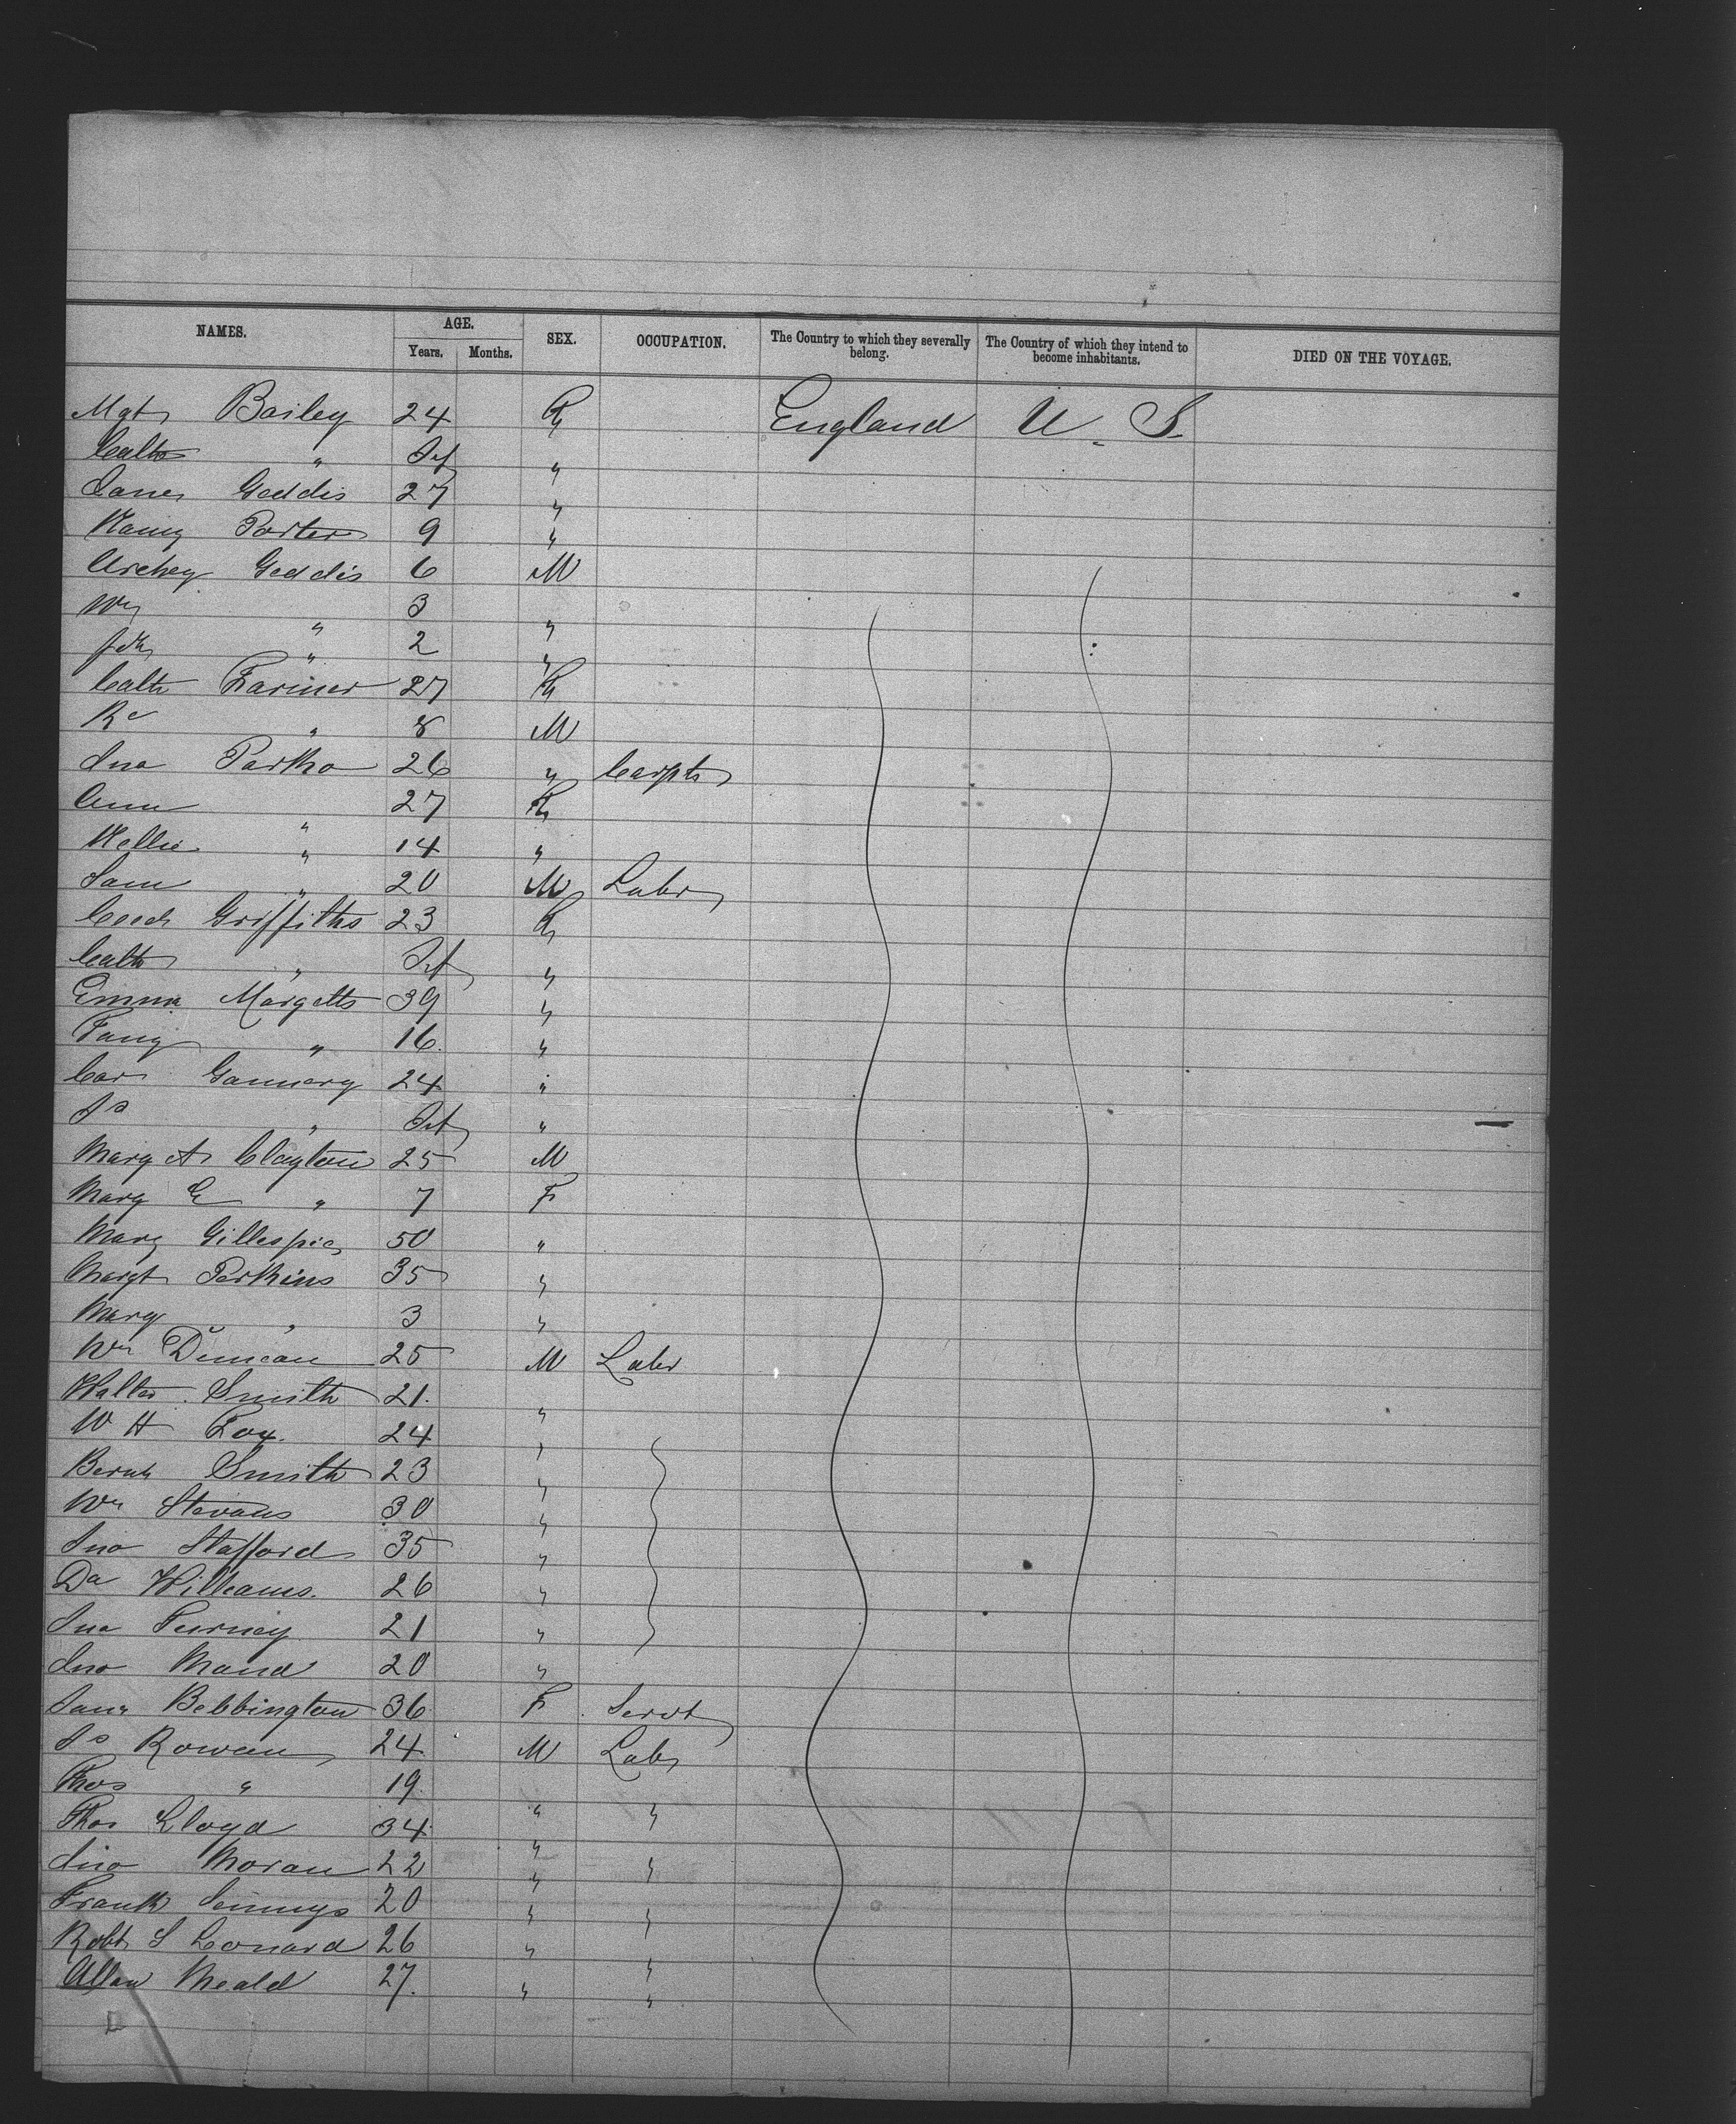 NAMES. AGE. SEX. OCCUPATION. The Country to which they severally belong. The Country of which they intend to become inhabitants. DIED ON THE VOYAGE.
Years. Months.
Mgt Bailey 24 F England U. S.
Cath " Inf "
Jane Geddis 27 "
Nancy Porter 9 "
Archey Geddis 6 M
Wm " 3 "
" 2 "
Cath Farmer 27 F
Rd " 8 M
Jno 26 " Carptr
Ann " 27 F
Nellie " 14 "
Sam " 20 M Labr
Griffiths 23 F
Cath " Inf "
Emma Margetts 39 "
Fany " 16 "
Car 24 "
Js " Inf "
Mary A Clayton 25 M
Mary E " 7 F
Mary Gillespie 50 "
Margt Perkins 35 "
Mary " 3 "
Wm Duncan 25 M Labr
Walter Smith 21 "
W H Fox 24 "
Smith 23 "
Wm Stevens 30 "
Jno Stafford 35 "
Da Williams 26 "
Jno 21 "
Jno 20 "
Jane Bebbington 36 F Servt
Js Rowan 24 M Labr
Thos " 19 " "
Thos Lloyd 34 " "
Jno Moran 22 " "
Frank 20 " "
Robt S Leonard 26 " "
Allan 27 " "